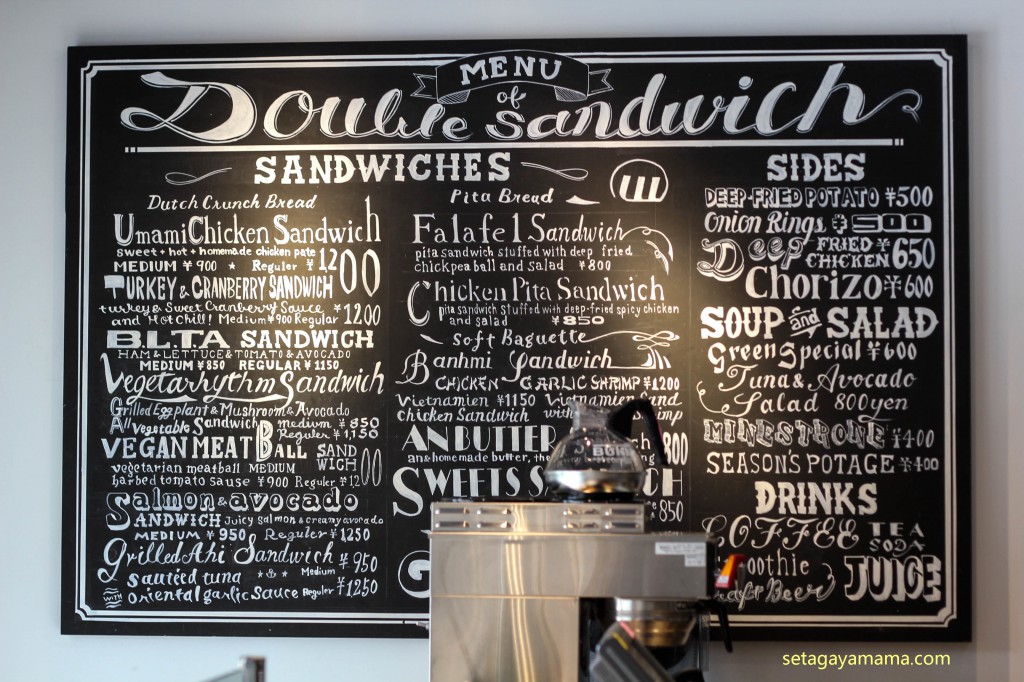 MENU
of
Double Sandwich
SANDWICHES
Dutch Crunch Bread
Umami Chicken Sandwich
sweet + hot + homemade chicken pate
MEDIUM ¥900 ★ Reguler ¥1,200
TURKEY & CRANBERRY SANDWICH
turkey & Sweet Cranberry Sauce
and Hot Chili! Medium ¥900 Regular ¥1200
B.L.T.A SANDWICH
HAM & LETTUCE & TOMATO & AVOCADO
MEDIUM ¥850 REGULAR ¥1150
Vegetarhythm Sandwich
Grilled Eggplant & Mushroom & Avocado
All Vegetable Sandwich Medium ¥850
Regular ¥1,150
VEGAN MEAT BALL SANDWICH
vegetarian meatball MEDIUM
barbed tomato sause ¥900 Regular ¥1200
Salmon & avocado
SANDWICH Juicy salmon & creamy avocado
MEDIUM ¥950 Regular ¥1250
Grilled Ahi Sandwich ¥950
Sautéed tuna Medium
WITH Oriental garlic sauce Regular ¥1250
Pita Bread
Falafel Sandwich
pita sandwich stuffed with deep fried
chickpea ball and salad ¥800
Chicken Pita Sandwich
pita sandwich stuffed with deep-fried spicy chicken
and salad ¥850
Soft Baguette
Banhmi Sandwich
CHICKEN GARLIC SHRIMP ¥1200
Vietnamien ¥1150 Vietnamien Sand
Chicken Sandwich with
AN BUTTER 800
an & homemade butter, the
SWEETS SA CH
850
G
SIDES
DEEP-FRIED POTATO ¥500
Onion Rings ¥500
Deep FRIED CHICKEN ¥650
Chorizo ¥600
SOUP and SALAD
Green Special ¥600
Tuna & Avocado
Salad 800yen
MINESTRONE ¥400
SEASON'S POTAGE ¥400
DRINKS
COFFEE TEA
SODA
moothie
raft Beer JUICE
setagayamama.com